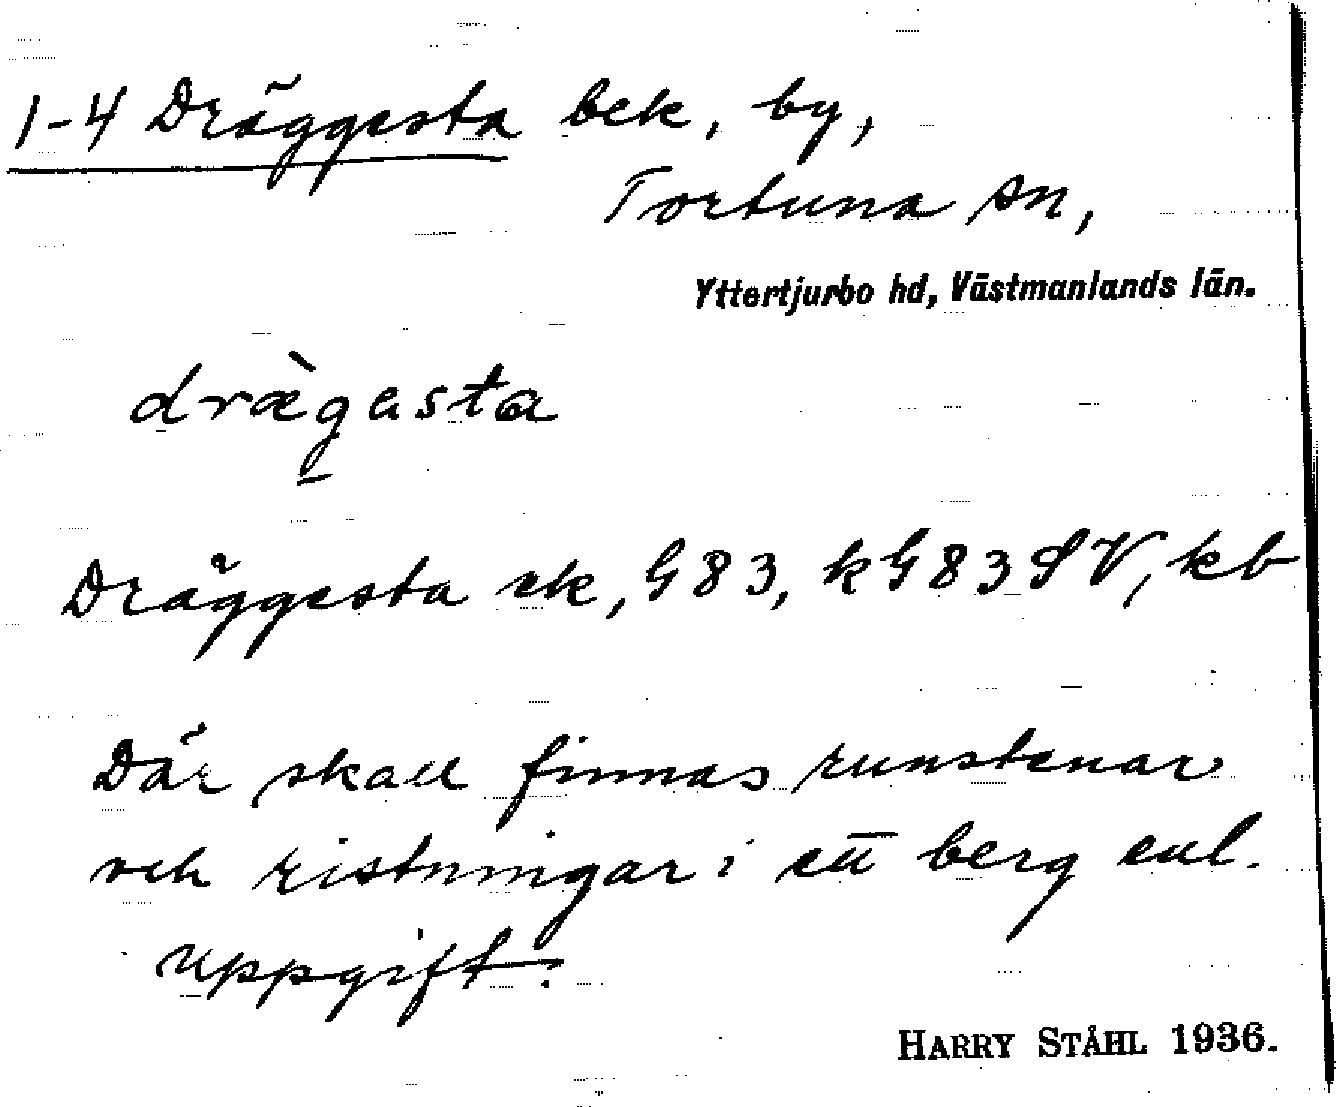 1-4 Dräggesta bek, by,
Tortuna sn,
Yttertjurbo hd, Västmanlands län.
dræ̀gesta
Dräggesta ek, G 83, kG 83 SV, kb
Där skall finnas runstenar
och ristningar i ett berg enl.
uppgift.
HARRY STÅHL 1936.